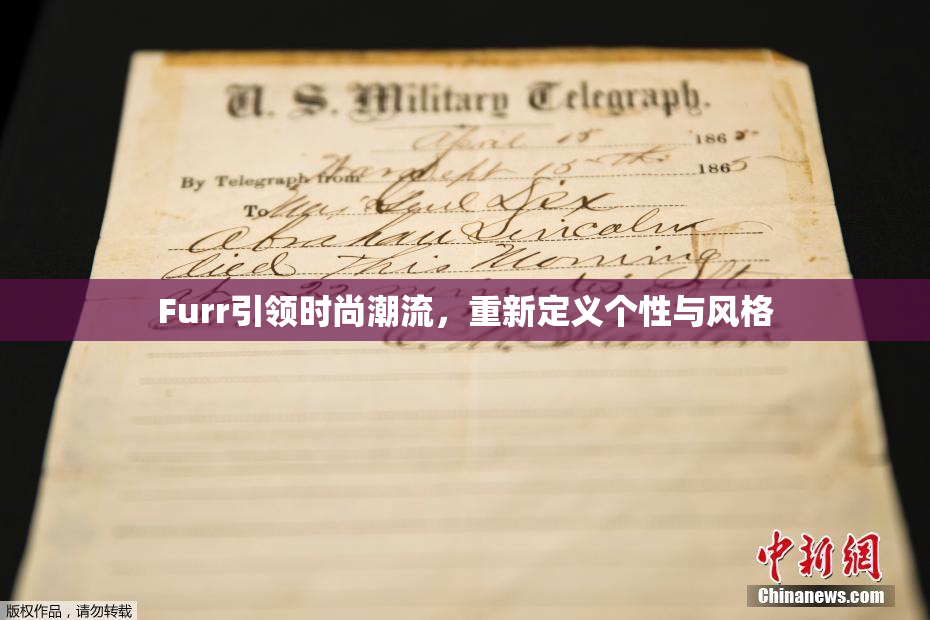 U. S. Military Telegraph.
April 15 1865
By Telegraph from War Dept 15th 1865
To Maj Genl Dix
Abraham Lincoln
died This Morning
at 22 minutes after
Furr引领时尚潮流，重新定义个性与风格
E. M. Stanton
中新網
Chinanews.com
版权作品，请勿转载